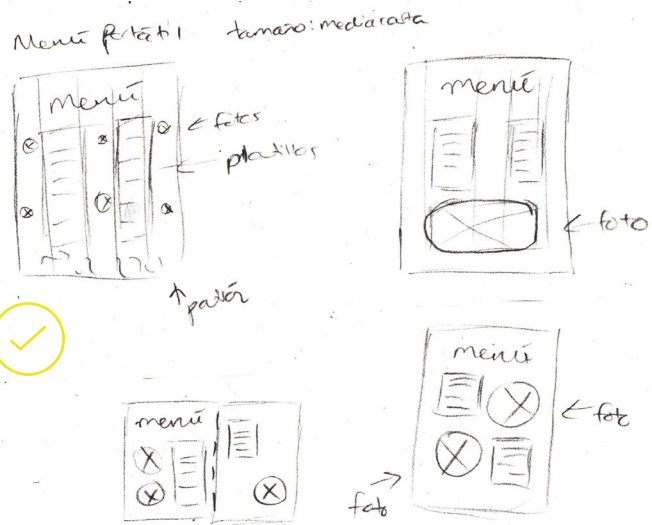 Menú Portátil tamaño: media carta
menú
← fotos
← platillos
↑ patrón
menú
← foto
menú
menú
← foto
foto →